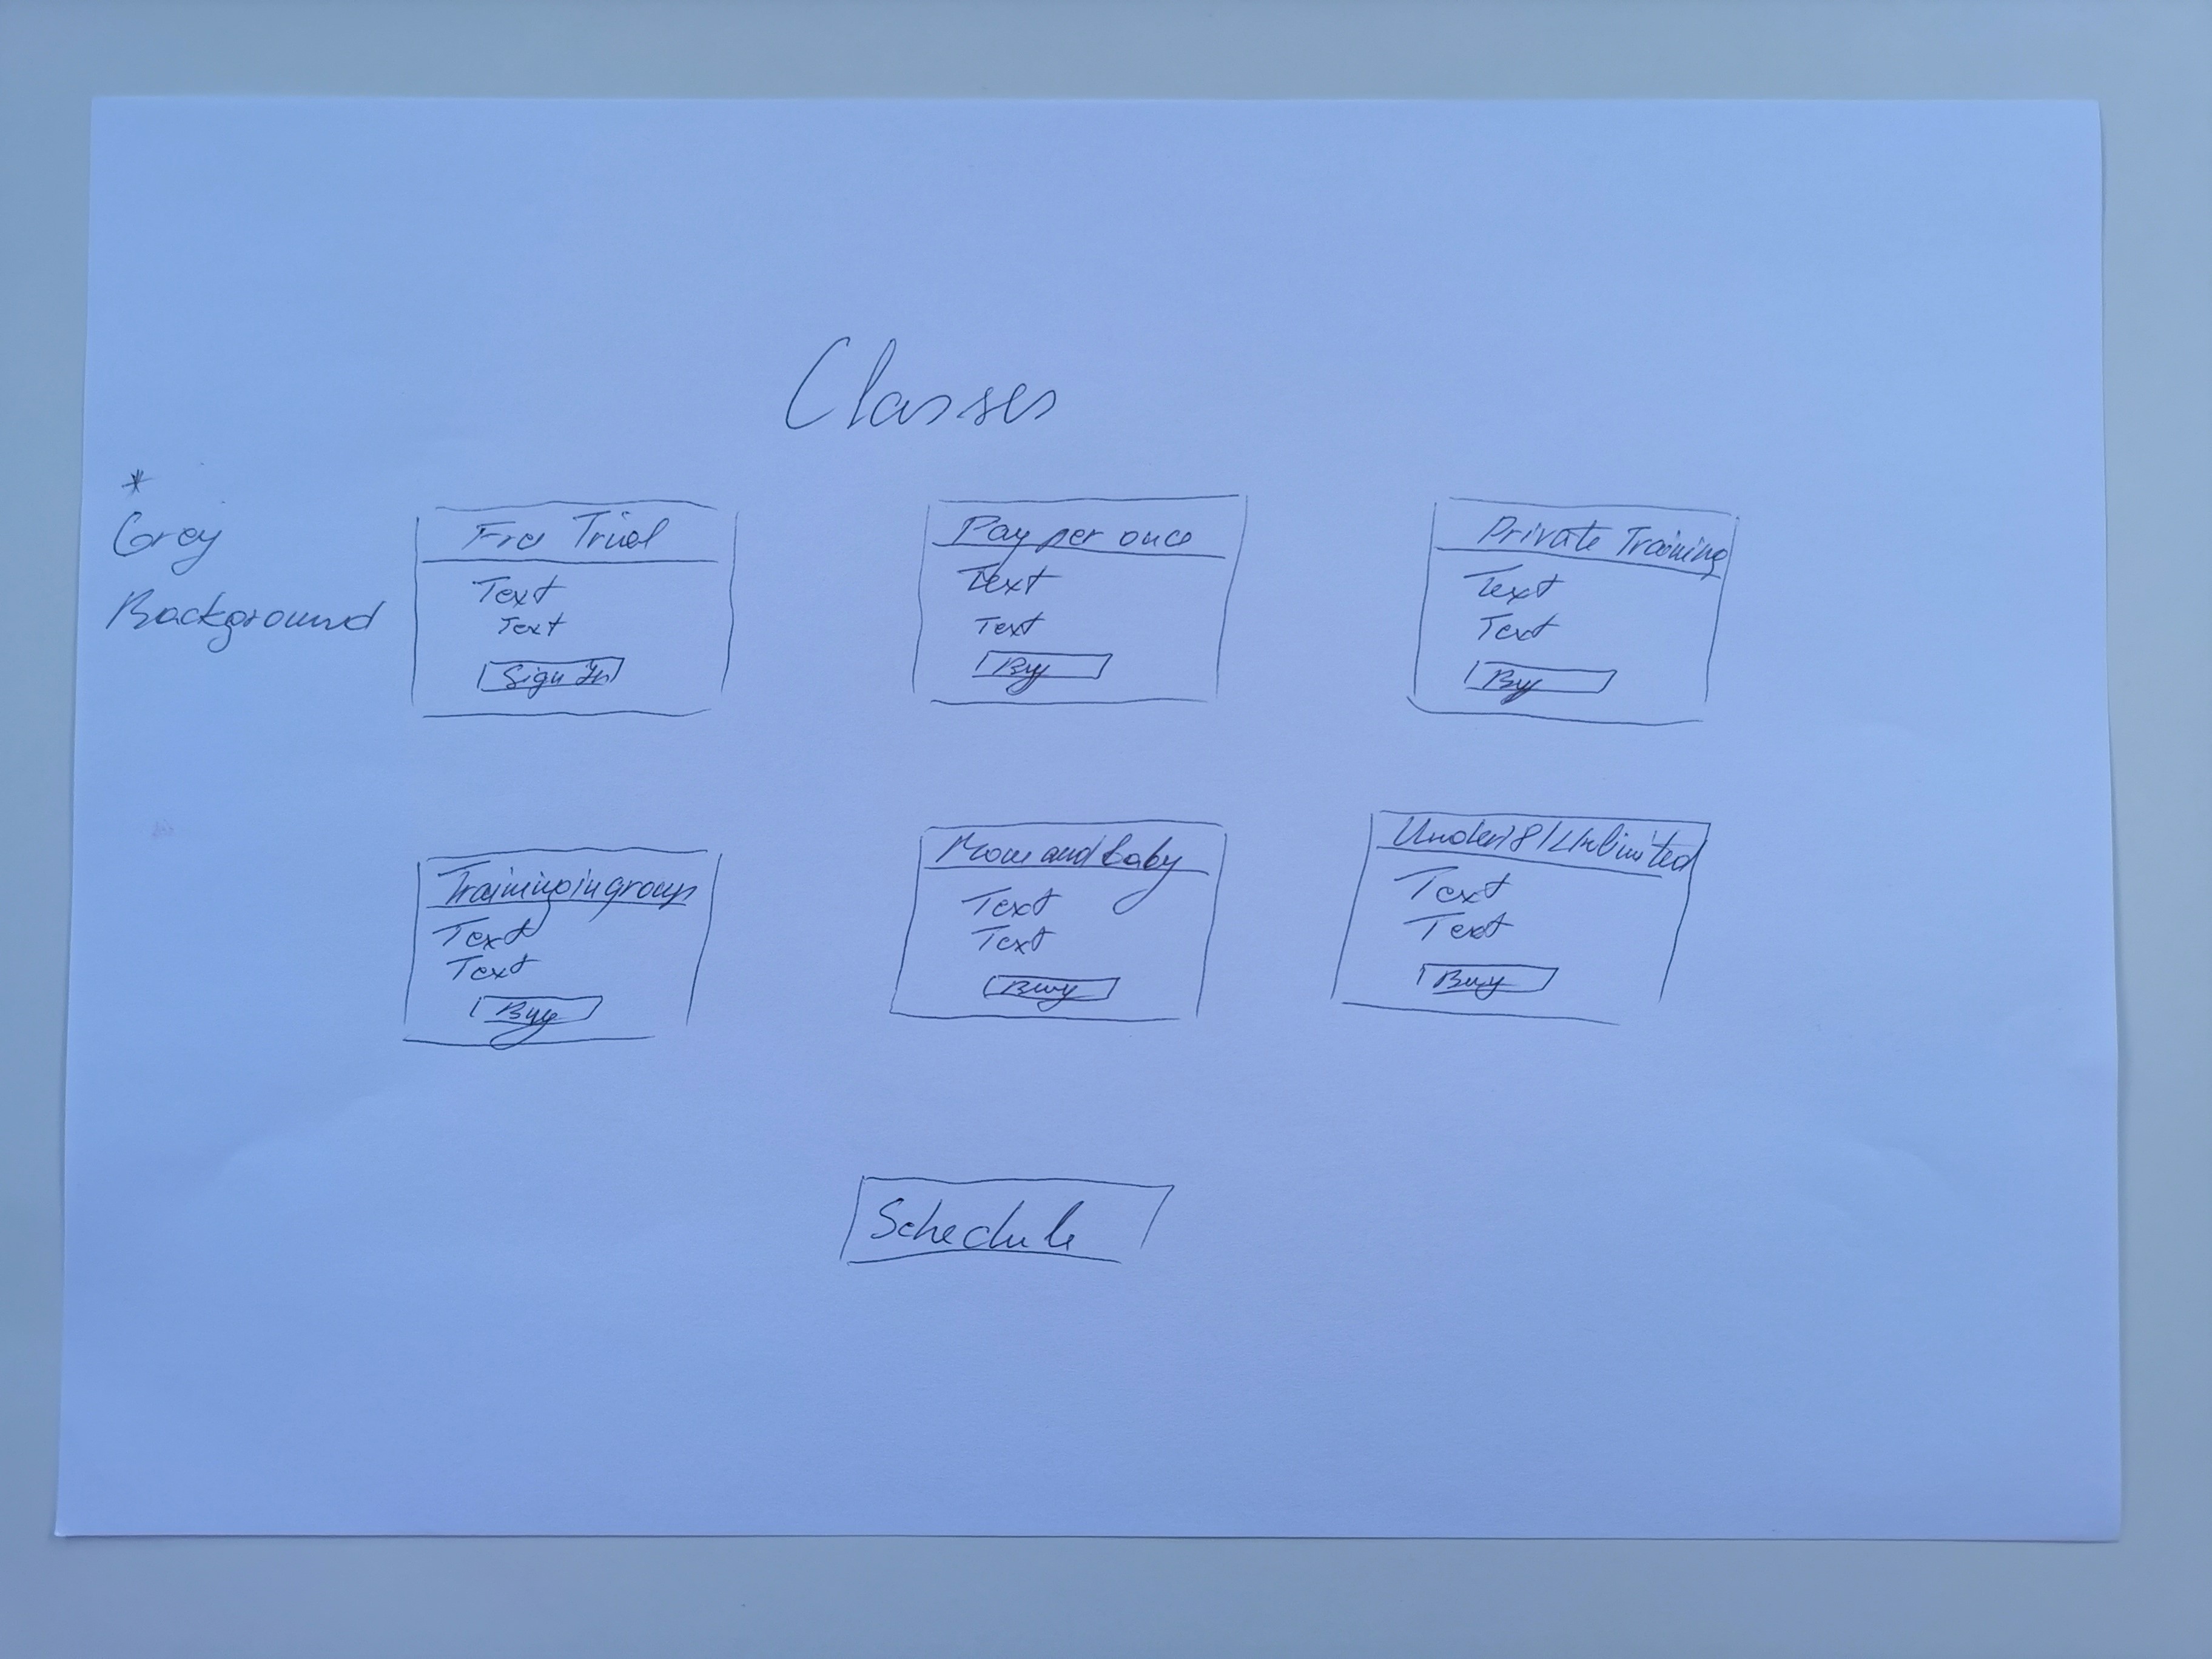 Classes
*
Grey
Background
Fre Trial
Text
Text
Sign In
Pay per once
Text
Text
Buy
Private Training
Text
Text
Buy
Training in group
Text
Text
Buy
Mom and baby
Text
Text
Buy
Under 18/Unlimited
Text
Text
Buy
Schedule